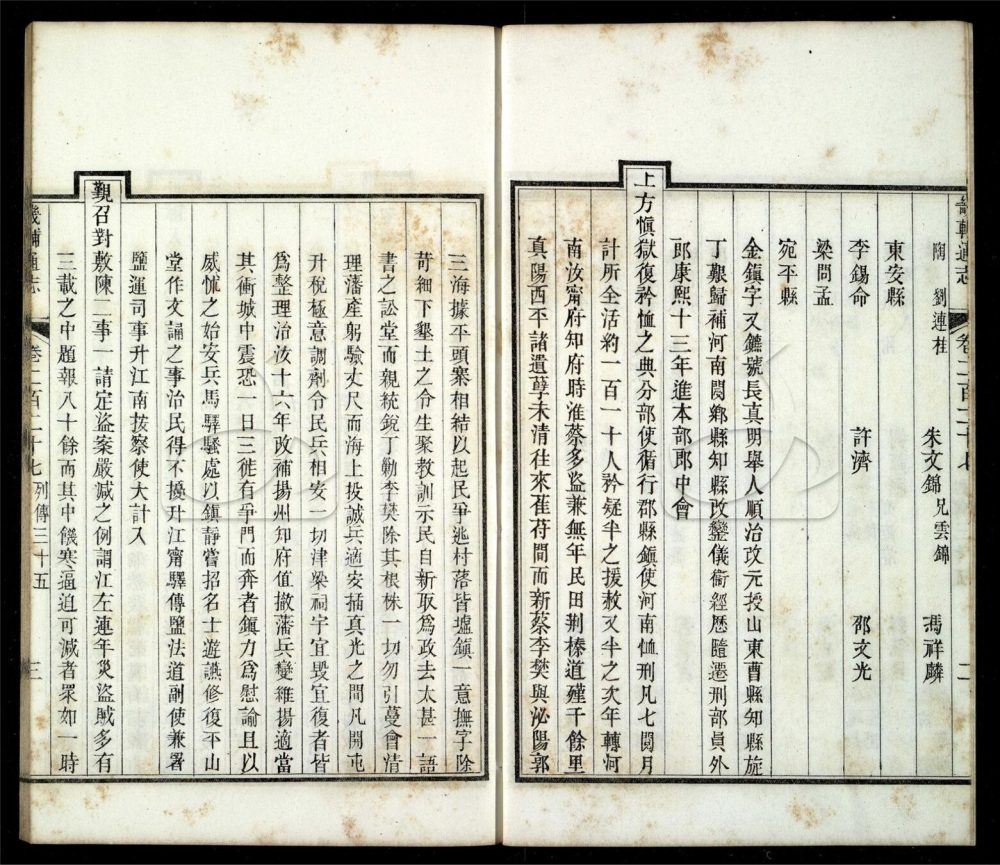 畿輔通志 卷二百二十七 二
陶 劉連桂 朱文錦 兄雲錦 馮祥麟
東安縣
李錫命 許濟 邵文光
梁問孟
宛平縣
金鎮字又鑣號長真明舉人順治改元授山東曹縣知縣旋
丁艱歸補河南閿鄉縣知縣改鑾儀衛經歷隨遷刑部員外
郎康熙十三年進本部郎中會
上方愼獄復矜恤之典分部使循行郡縣鎮使河南恤刑凡七閱月
計所全活約一百一十人矜疑半之援赦又半之次年轉河
南汝甯府知府時淮蔡多盜兼無年民田荆榛道殣千餘里
真陽西平諸遺孽未清往來萑苻間而新蔡李樊與泌陽郭
三海據平頭寨相結以起民爭逃村落皆墟鎮一意撫字除
苛細下墾土之令生聚教訓示民自新取為政去太甚一語
書之訟堂而親統銳丁勦李樊除其根株一切勿引蔓會清
理藩產躬驗丈尺而海上投誠兵適安插真光之間凡開屯
升稅極意調劑令民兵相安一切津梁祠宇宜毀宜復者皆
為整理治汝十六年改補揚州知府值撤藩兵變維揚適當
其衝城中震恐一日三徙有爭門而奔者鎮力為慰諭且以
威怵之始安兵馬驛騷處以鎮靜嘗招名士遊讌修復平山
堂作文誦之事治民得不擾升江甯驛傳鹽法道副使兼署
鹽運司事升江南按察使大計入
覲召對敷陳二事一請定盜案嚴減之例謂江左連年災盜賊多有
三載之中題報八十餘而其中饑寒逼迫可減者眾如一時
畿輔通志 卷二百二十七 列傳三十五 三